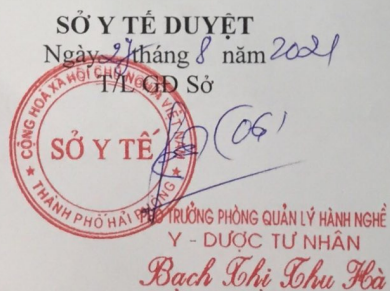 SỞ Y TẾ DUYỆT
Ngày 27 tháng 8 năm 2021
T/L GĐ Sở
CỘNG HOÀ XÃ HỘI CHỦ NGHĨA VIỆT NAM
SỞ Y TẾ
THÀNH PHỐ HẢI PHÒNG
(06)
PHÓ TRƯỞNG PHÒNG QUẢN LÝ HÀNH NGHỀ
Y - DƯỢC TƯ NHÂN
Bạch Thị Thu Hà